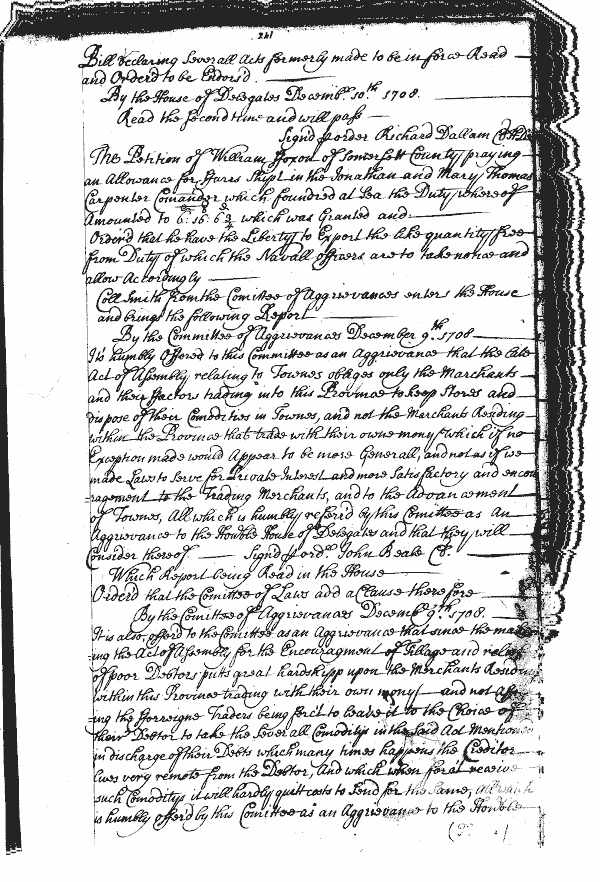 241
Bill declaring Severall Acts formerly made to be in force Read
and Orderd to be Endors'd
By the House of Delegates Decemb.r 10.th 1708.
Read the Second time and will pass
Signd p order Richard Dallam
The Petition of William Foxon of Somersett County praying
an Allowance for Furrs Shipt in the Jonathan and Mary Thomas
Carpenter Comander which foundred at Sea the Duty whereof
Amounted to 6: 16: 6 3/4 which was Granted and
Orderd that he have the Liberty to Export the like quantity free
from Duty of which the Navall officers are to take notice and
allow Accordingly
Coll Smith from the Comittee of Aggrievances enters the House
and brings the following Report
By the Committee of Aggrievances December 9.th 1708
It's humbly Offered to this Committee as an Aggrievance that the late
Act of Assembly relating to Townes obliges only the Merchants
and their Factors trading into this Province to keep Stores and
dispose of their Comodities in Townes, and not the Merchants Residing
within the Province that trade with their owne mony which if no
Exception made would Appear to be more Generall, and not as if we
made Laws to Serve for Private Interest and more Satisfactory and encou
ragement to the Trading Merchants, and to the Advancement
of Townes, All which is humbly referr'd by this Comittee as An
Aggrievance to the Honble House of Delegates and that they will
Consider thereof Signd p ord.r John Beale Cl.
Which Report being Read in the House
Orderd that the Comittee of Laws add a Clause therefore
By the Comittee of Aggrievances Decemb.r 9.th 1708.
It is also offerd to the Comittee as an Aggrievance that since the mak
ing the Act of Assembly for the Encouragment of Tillage and relief
of poor Debtors puts great hardshipp upon the Merchants Resid
within this Province trading with their own mony and not
ing the Forreigne Traders being forc't to leave it to the Choice of
their Debtor to take the Severall Comoditys in the Said Act Mentioned
in discharge of their Debts which many times happens the Creditor
lives very remote from the Debtor, And which when forc't receive
such Comoditys it will hardly quitt costs to Send for the Same, all which
is humbly offerd by this Comittee as an Aggrievance to the Honble